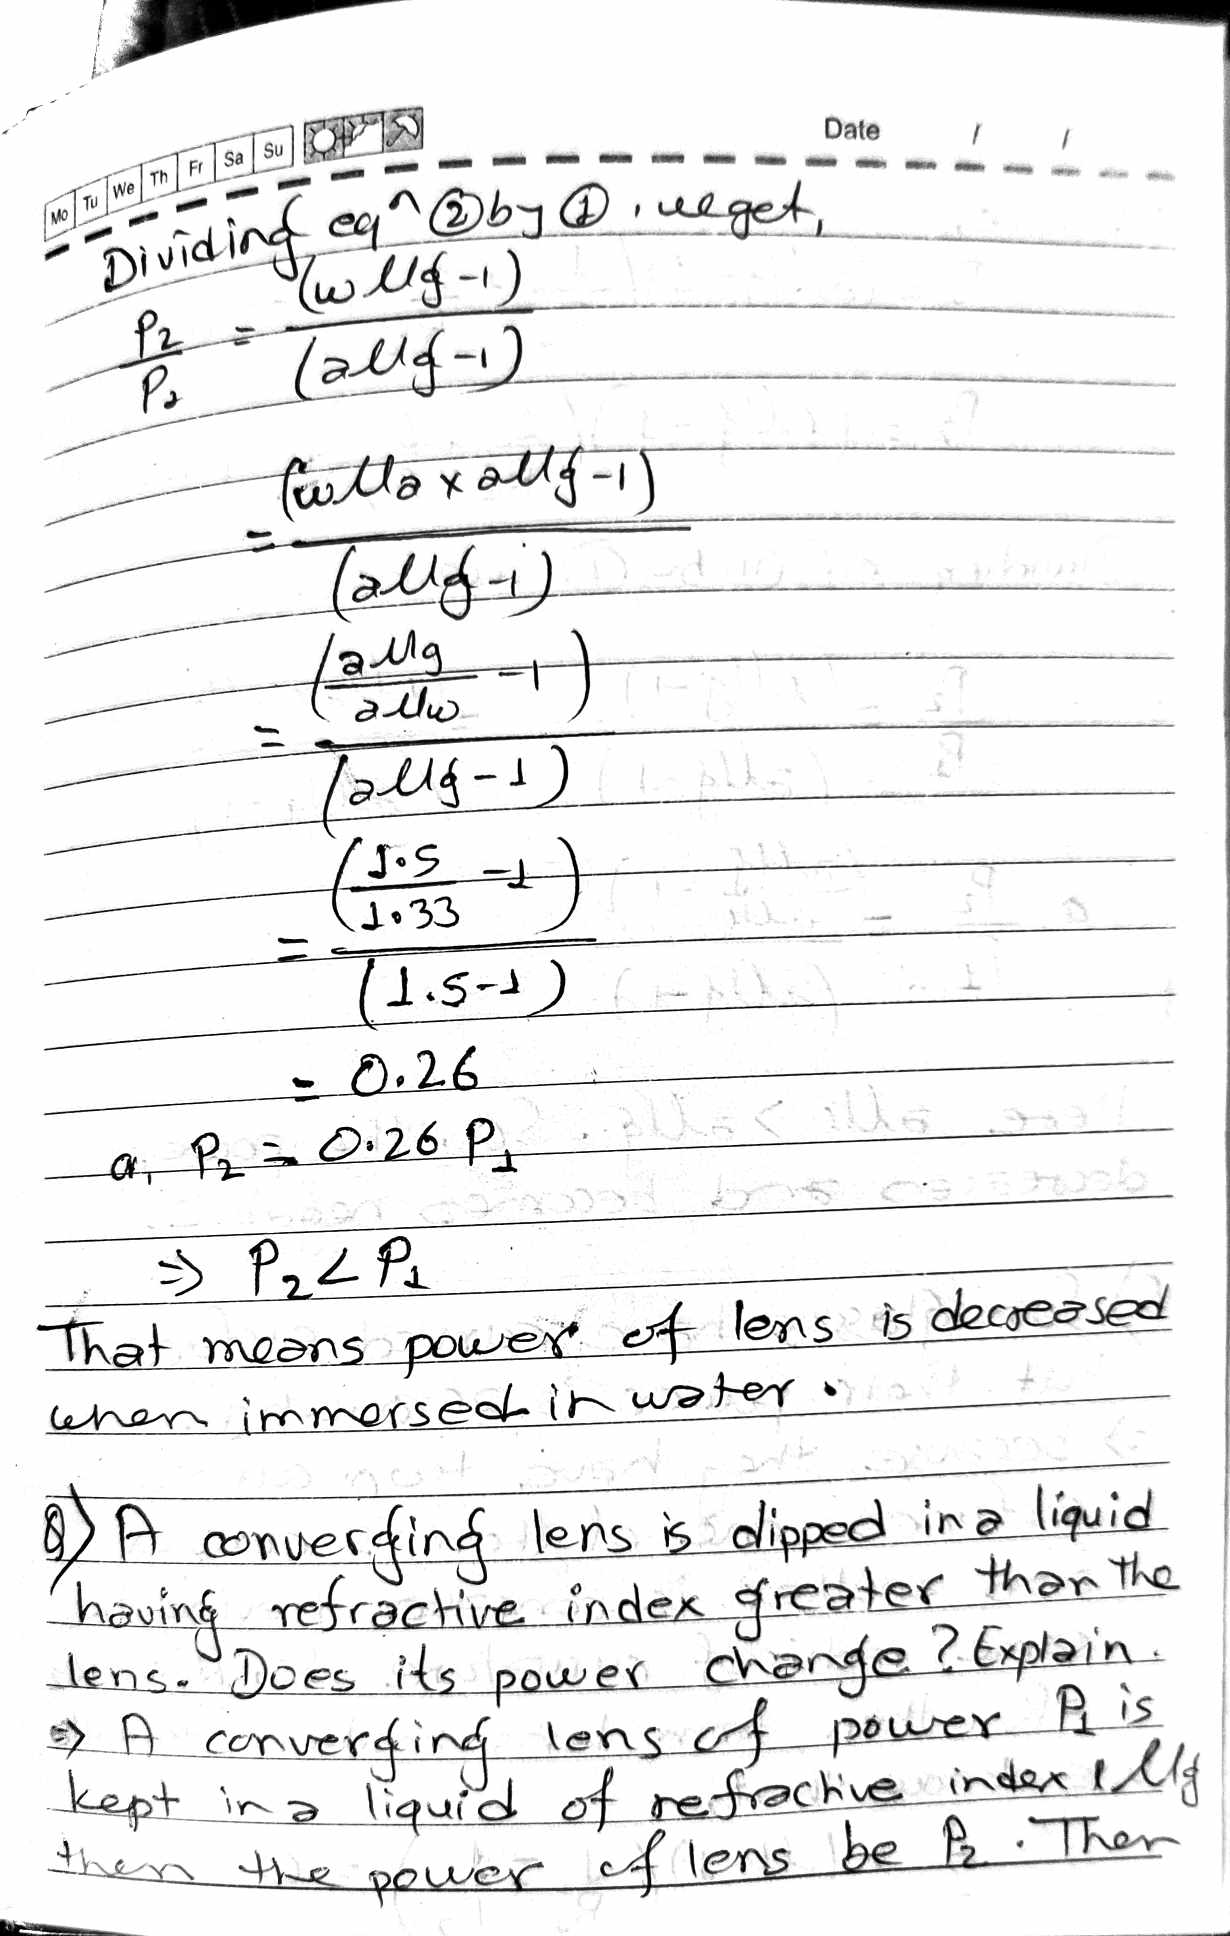 Mo Tu We Th Fr Sa Su
Date / /
Dividing eqⁿ ② by ①, we get,
P₂/P₁ = (wμg-1)/(aμg-1)
= (wμa x aμg-1)/(aμg-1)
= (aμg/aμw - 1)/(aμg-1)
= (1.5/1.33 - 1)/(1.5-1)
= 0.26
or, P₂ = 0.26 P₁
⇒ P₂ < P₁
That means power of lens is decreased
when immersed in water.
Q) A converging lens is dipped in a liquid
having refractive index greater than the
lens. Does its power change? Explain.
⇒ A converging lens of power P₁ is
kept in a liquid of refractive index lμg
then the power of lens be P₂. Then